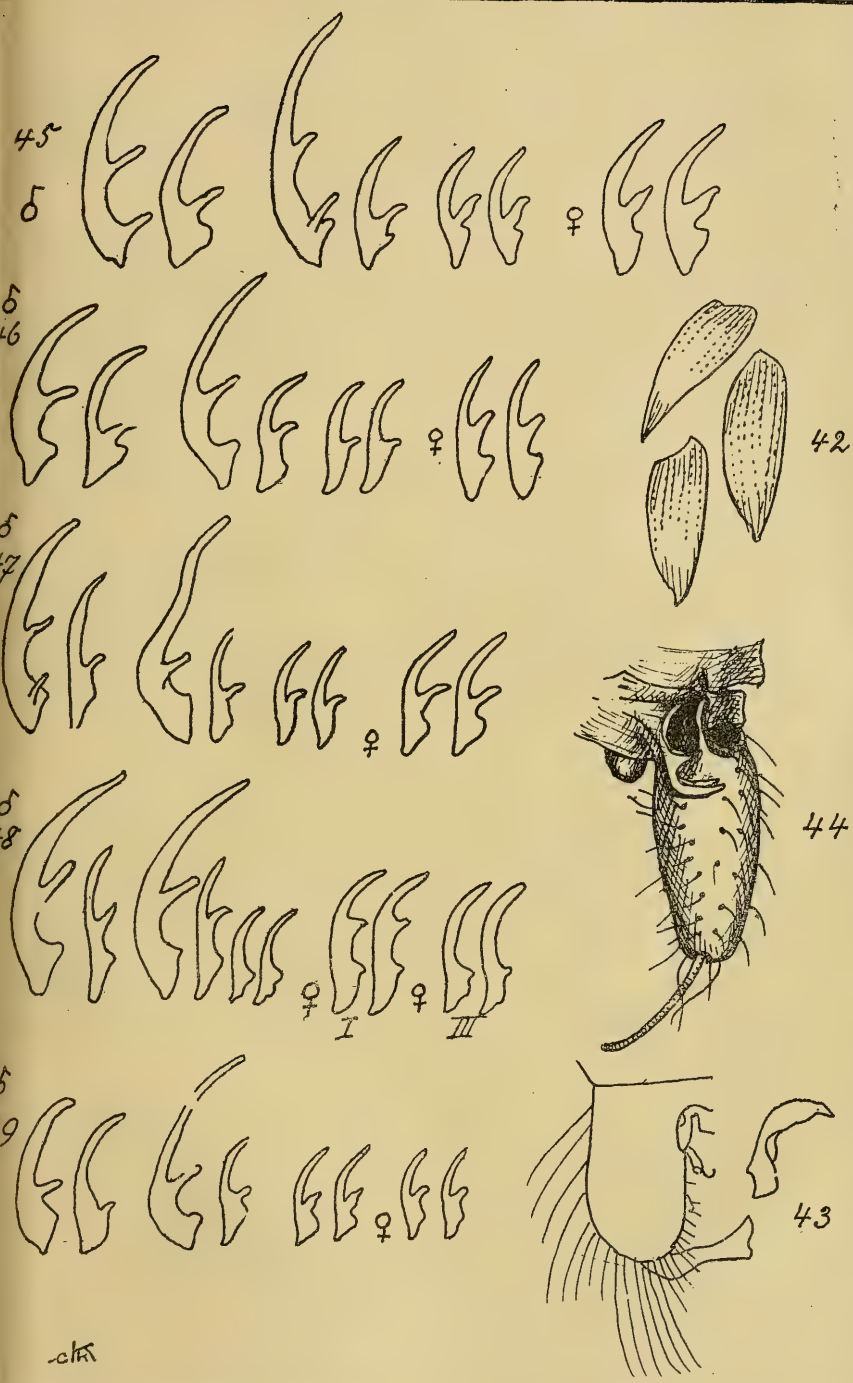 45
♂
♀
♂
46
♀
42
♂
47
♀
44
♂
48
♀
I
♀
III
♂
49
♀
43